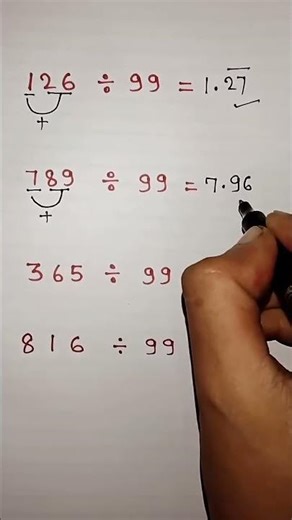 126 ÷ 99 = 1.2̅7̅
+
789 ÷ 99 = 7.96
+
365 ÷ 99
816 ÷ 99